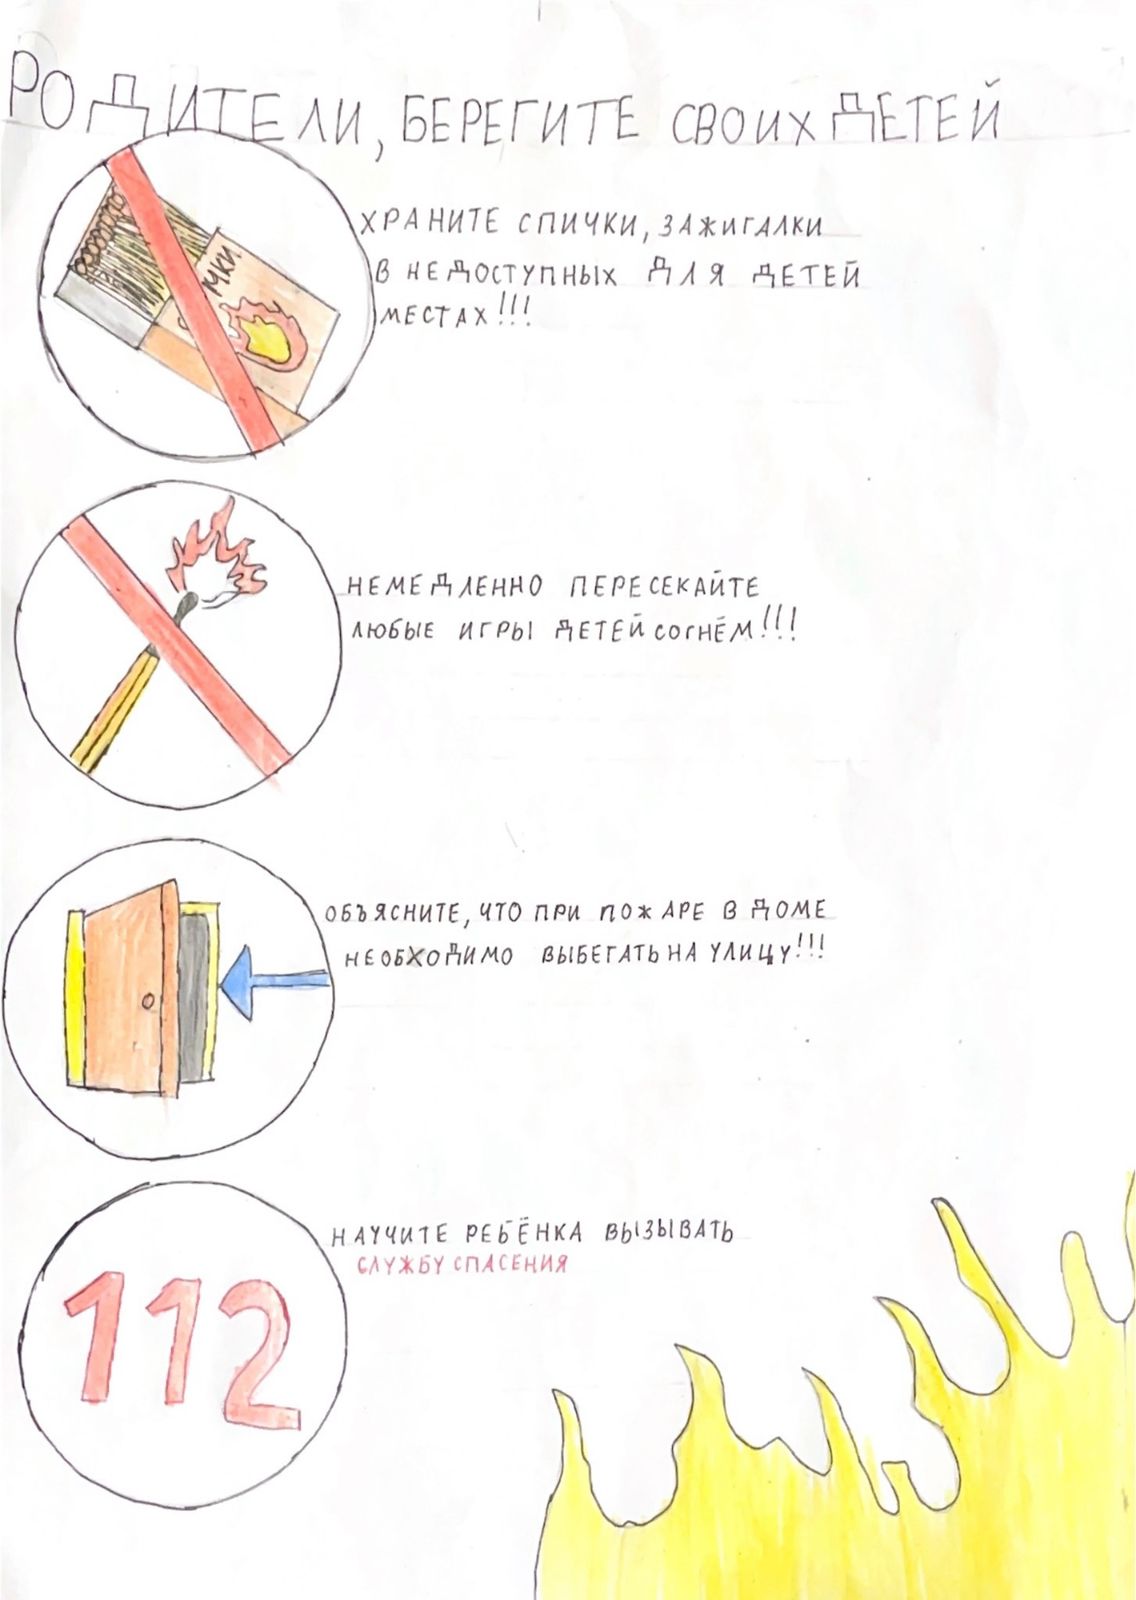 РОДИТЕЛИ, БЕРЕГИТЕ СВОИХ ДЕТЕЙ
ЧКИ
ХРАНИТЕ СПИЧКИ, ЗАЖИГАЛКИ
В НЕДОСТУПНЫХ ДЛЯ ДЕТЕЙ
МЕСТАХ!!!
НЕМЕДЛЕННО ПЕРЕСЕКАЙТЕ
ЛЮБЫЕ ИГРЫ ДЕТЕЙ СОГНЁМ!!!
ОБЪЯСНИТЕ, ЧТО ПРИ ПОЖАРЕ В ДОМЕ
НЕОБХОДИМО ВЫБЕГАТЬ НА УЛИЦУ!!!
НАУЧИТЕ РЕБЁНКА ВЫЗЫВАТЬ
СЛУЖБУ СПАСЕНИЯ
112